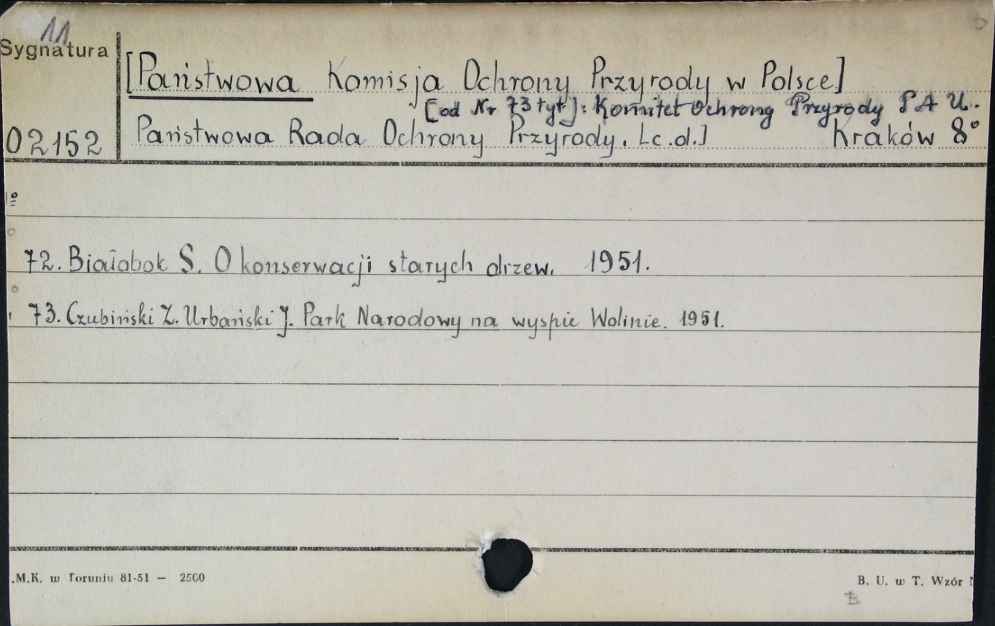 11
Sygnatura
[Państwowa Komisja Ochrony Przyrody w Polsce]
[od Nr 73 tyt]: Komitet Ochrony Przyrody P A U.
02152
Państwowa Rada Ochrony Przyrody. [c.d.] Kraków 8°
72. Białobok S. O konserwacji starych drzew. 1951.
73. Czubiński Z. Urbański J. Park Narodowy na wyspie Wolinie. 1951.
.M.K. w Toruniu 81-51 — 2500
B. U. w T. Wzór